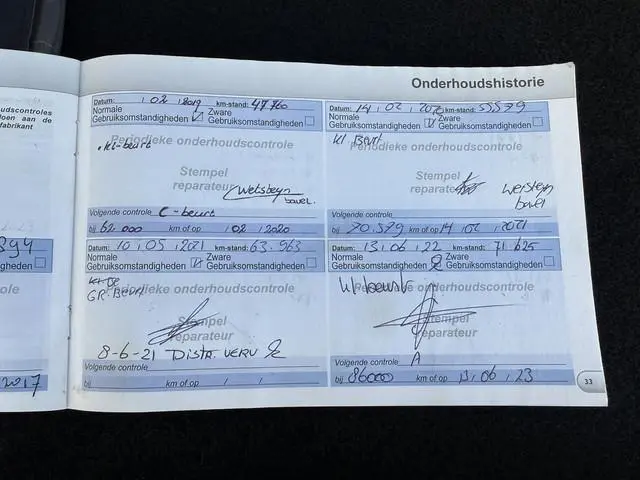 udscontroles
doen aan de
fabrikant
394
gheden
2017
Onderhoudshistorie
Datum: / 02 / 2019 km-stand: 47760
Normale Gebruiksomstandigheden Zware Gebruiksomstandigheden
Periodieke onderhoudscontrole
kl-beurt
Stempel
reparateur
bavel.
Volgende controle C-beurt
bij 62.000 km of op / 02 / 2020
Datum: 14 / 02 / 2020 km-stand: 55579
Normale Gebruiksomstandigheden Zware Gebruiksomstandigheden
Kl. Beurt
Periodieke onderhoudscontrole
Stempel
reparateur
bavel
Volgende controle
bij 70.579 km of op 14 / 02 / 2021
Datum: 10 / 05 / 2021 km-stand: 63.963
Normale Gebruiksomstandigheden Zware Gebruiksomstandigheden
Periodieke onderhoudscontrole
GR. Beurt
Stempel
reparateur
8-6-21 Distr. verv
Volgende controle
bij km of op / /
Datum: 13 / 06 / 22 km-stand: 71.625
Normale Gebruiksomstandigheden Zware Gebruiksomstandigheden
Periodieke onderhoudscontrole
kl beurt
Stempel
reparateur
Volgende controle A
bij 86000 km of op 13 / 06 / 23
33